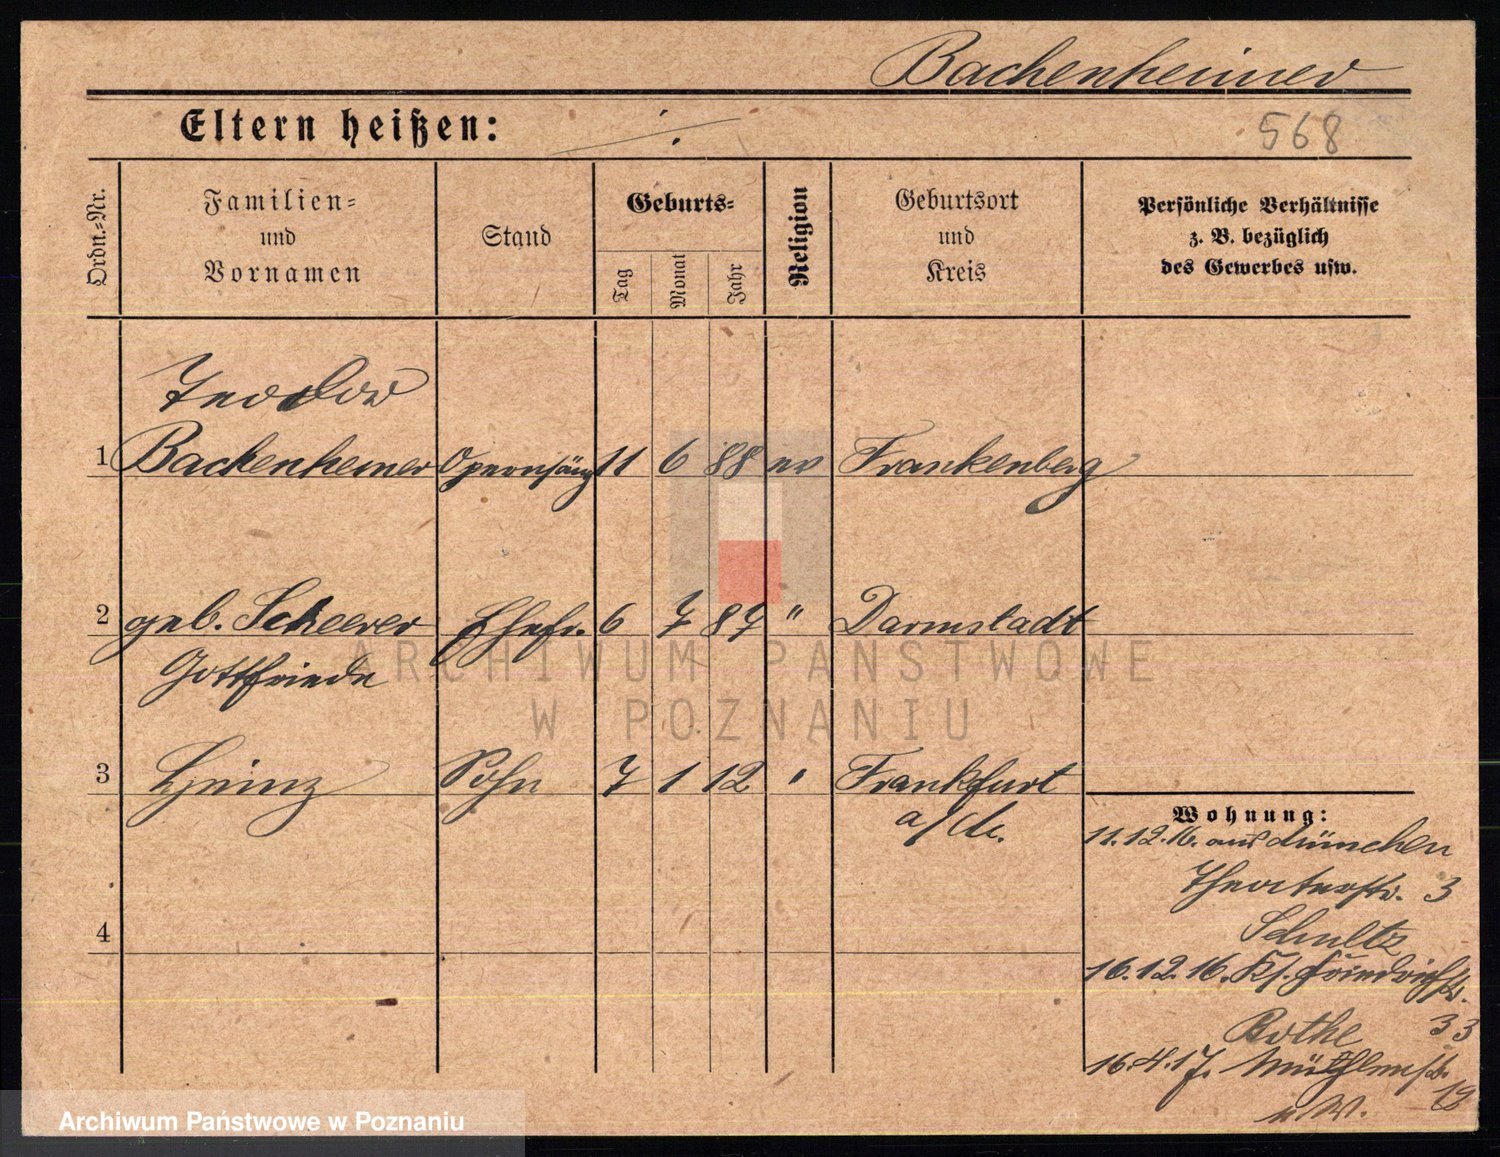 Bachenheimer
Eltern heißen: ./.
568
Ordn.-Nr.
Familien=
und
Vornamen
Stand
Geburts=
Tag
Monat
Jahr
Religion
Geburtsort
und
Kreis
Persönliche Verhältnisse
z. B. bezüglich
des Gewerbes usw.
Teodor
1 Bachenheimer Opernsäng 11 6 88 ev Frankenberg
2 geb. Scheerer Ehefr. 6 7 87 " Darmstadt
Gottfriede
3 Heinz Sohn 7 1 12 " Frankfurt
a/M.
Wohnung:
11.12.16. aus München
Theaterstr. 3
Schultz
4
16.12.16. Ks. Friedrichstr.
33
Bothe
16.4.17. Mühlenstr.
12
u.W.
ARCHIWUM PAŃSTWOWE
W POZNANIU
Archiwum Państwowe w Poznaniu